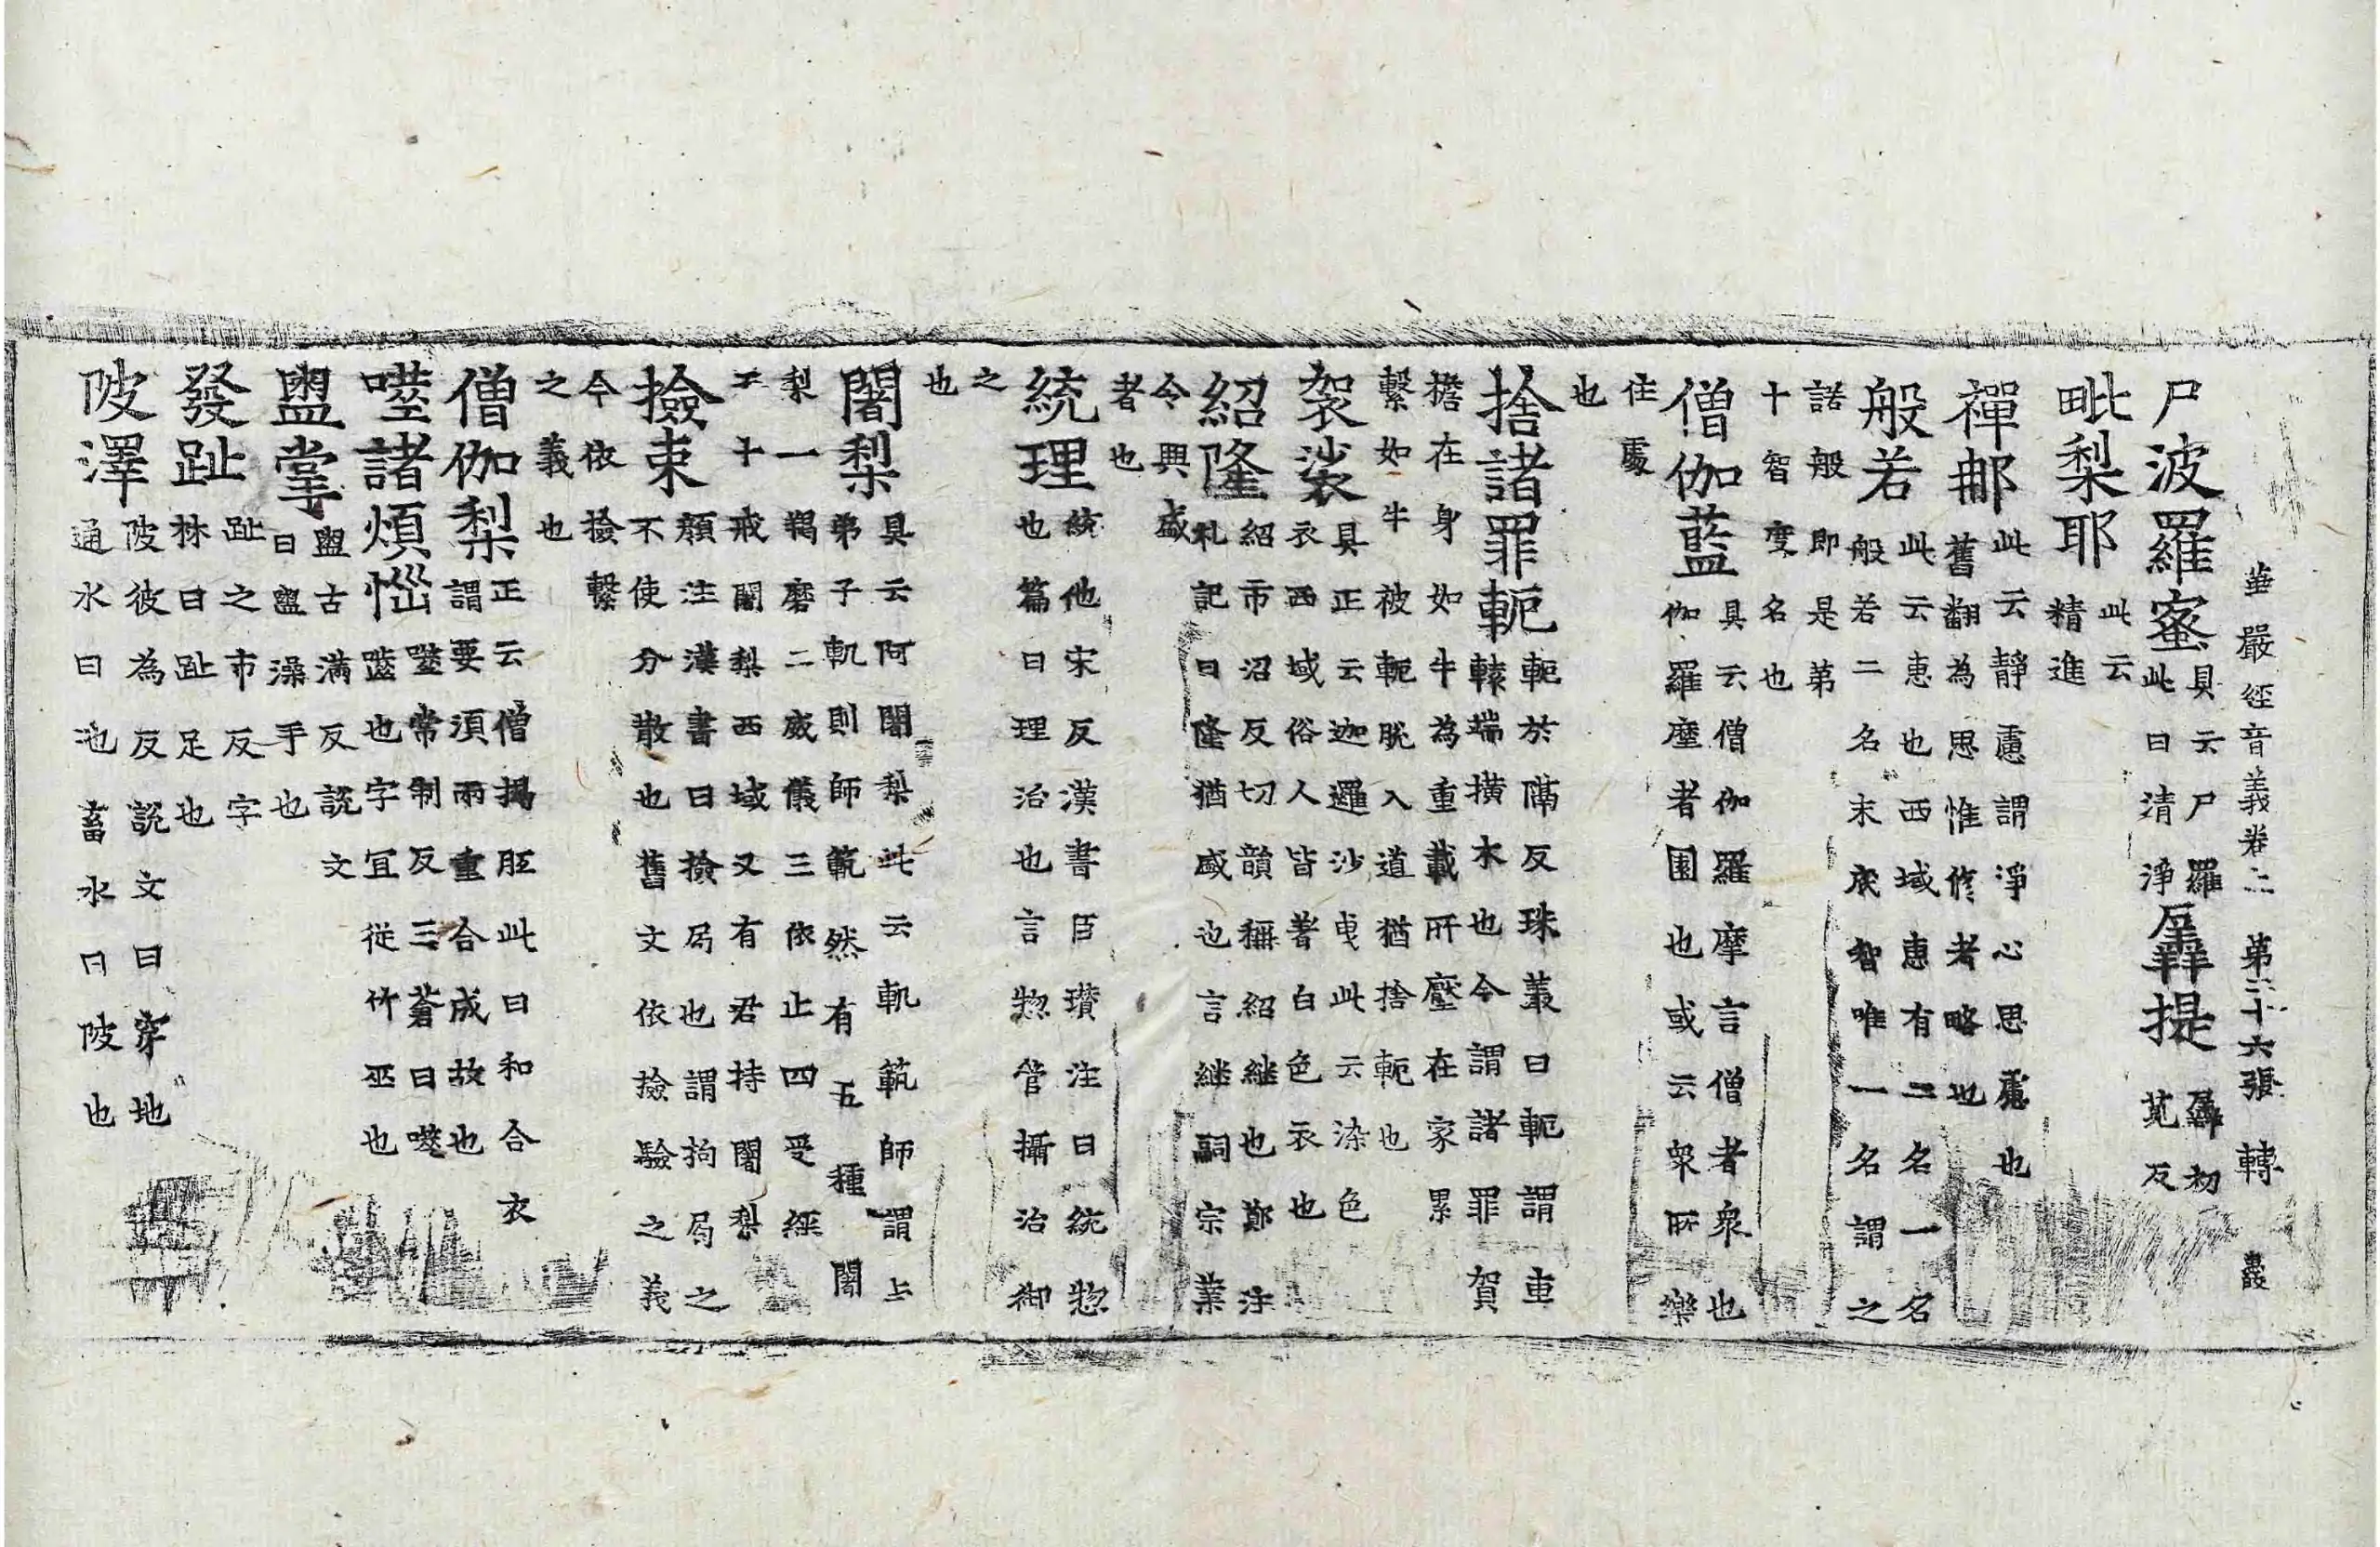 華嚴經音義卷上 第二十六張 轉
尸波羅蜜具云尸羅此曰清淨羼提羼初莧反
毗梨耶此云精進
禪那此云靜慮謂淨心思慮也舊翻為思惟修者略也
般若此云惠也西域惠有二名一名般若二名末底智唯一名謂之
諾般即是第十智度名也
僧伽藍具云僧伽羅摩言僧者衆也伽羅摩者園也或云衆所樂
住處也
捨諸罪軛軛於隔反珠叢曰軛謂車轅端橫木也今謂諸罪賀
擔在身如牛為重載所壓在家累繫如牛被軛脫入道猶捨軛也
袈裟具正云迦邏沙曳此云染色衣西域俗人皆著白色衣也
紹隆紹市沼反切韻稱紹繼也鄭注礼記曰隆猶盛也言継嗣宗業
令興盛者也
統理統他宋反漢書臣瓚注曰統惣也篇曰理治也言惣管攝治御
之也
闍梨具云阿闍梨此云軌範師謂与弟子軌則師範然有五種闍
梨一羯磨二威儀三依止四受經五十戒闍梨西域又有君持闍梨
撿束顏注漢書曰撿局也謂拘局之不使分散也舊文依撿驗之義
今依撿繫之義也
僧伽梨正云僧揭胝此曰和合衣謂要湏兩重合成故也
噬諸煩惱噬常制反三蒼曰噬齧也字冝從竹巫也
盥掌盥古滿反說文曰盥澡手也
發趾趾之市反字林曰趾足也
陂澤陂彼為反說文曰穿地通水曰池畜水曰陂也